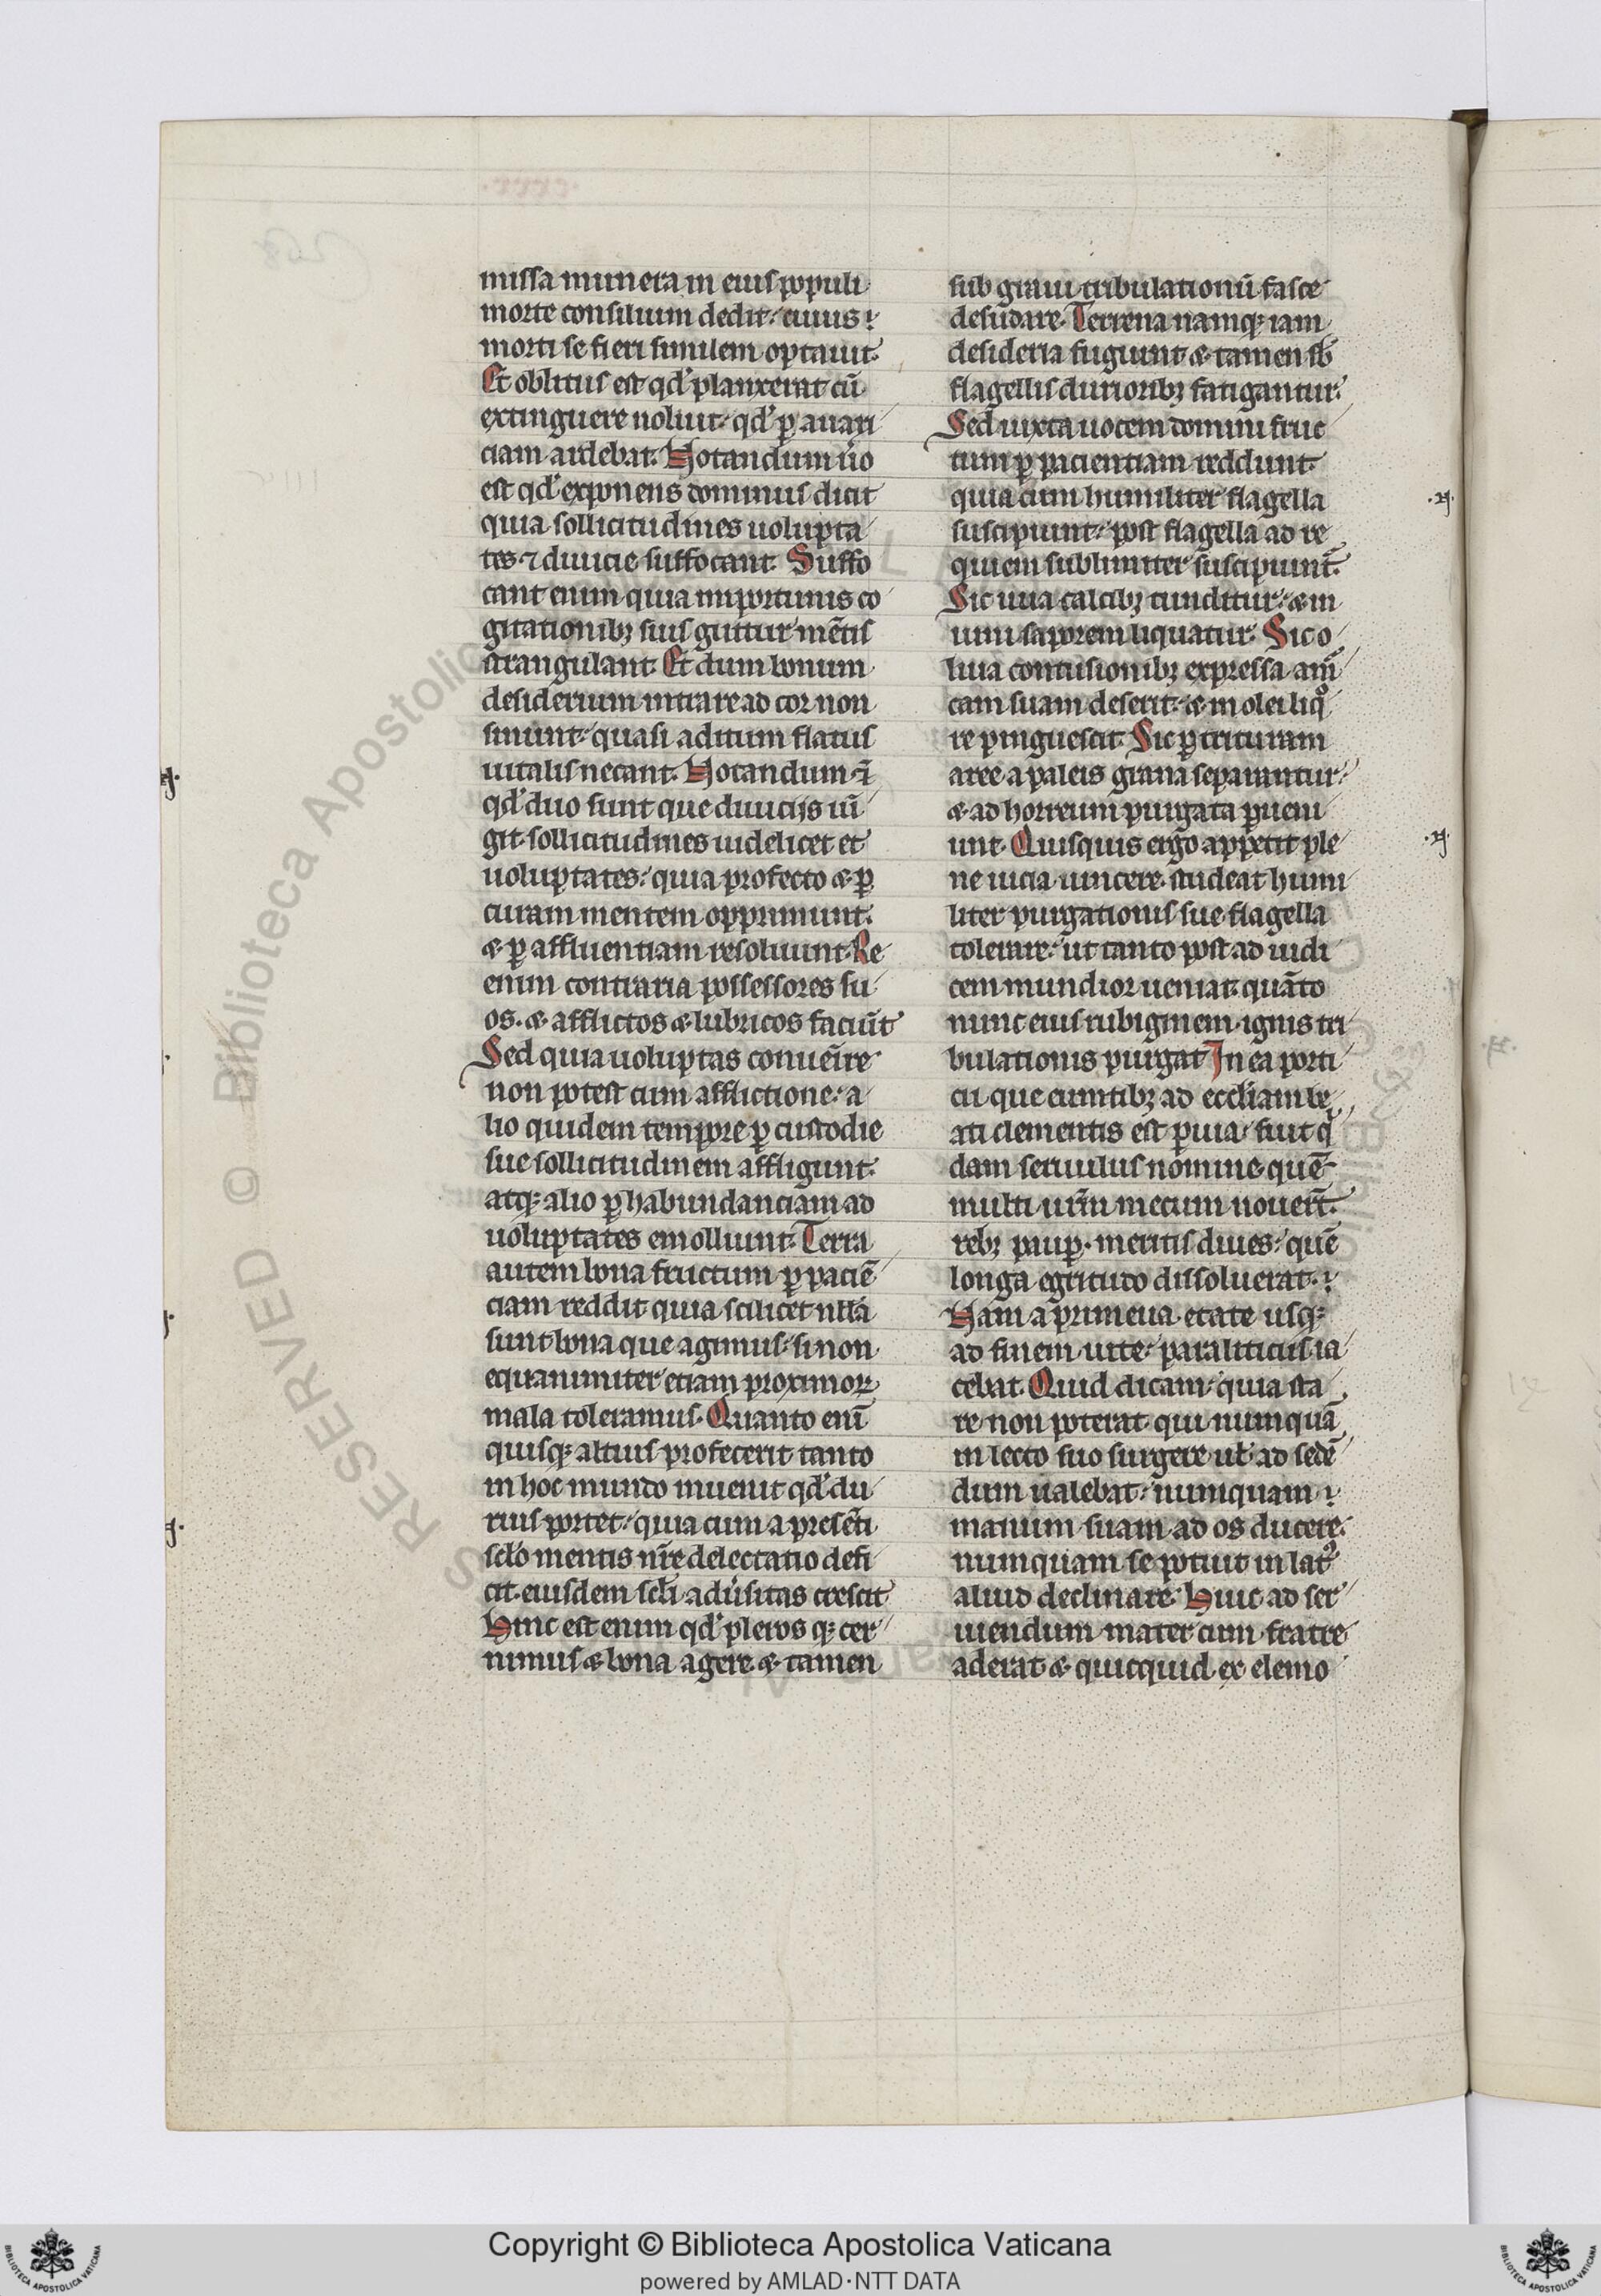 missa munera in eius populi
morte consilium dedit. cuius
morti se fieri similem optauit.
Et oblitus est qd' planxerat cū
extinguere noluit. qd' ꝑ auari
ciam ardebat. Notandum u̾o
est qd' exponens dominus dicit
quia sollicitudines uolupta
tes ⁊ diuicie suffocant. Suffo
cant enim quia importunis co
gitationibꝫ suis guttur mētis
strangulant. Et dum bonum
desiderium intrare ad cor non
sinunt. quasi aditum flatus
uitalis necant. Notandum ⁊̄
qd' duo sunt que diuicijs iū
git. sollicitudines uidelicet et
uoluptates. quia profecto & ꝑ
curam mentem opprimunt.
& ꝑ affluentiam resoluunt. Re
enim contraria possessores su
os. & afflictos & lubricos faciūt
Sed quia uoluptas conuēire
non potest cum afflictione. a
lio quidem tempore ꝑ custodie
sue sollicitudinem affligunt.
atqꝫ alio ꝑ habundanciam ad
uoluptates emolliunt. Terra
autem bona fructum ꝑ paciē
ciam reddit quia scilicet nlla
sunt bona que agimus. si non
equanimiter etiam proximoꝝ
mala toleramus. Quanto enī
quisqꝫ altius profecerit tanto
in hoc mundo inuenit qd' du
rius portet. quia cum a presēti
sclo mentis nr̄e delectatio defi
cit. eiusdem scli adu̾sitas crescit
Hinc est enim qd' pleros qꝫ cer
nimus & bona agere & tamen
sub graui tribulationū fasce
desudare. Terrena namqꝫ iam
desideria fugiunt & tamen sb̄
flagellis durioribꝫ fatigantur.
Sed iuxta uocem domini fruc
tum ꝑ pacientiam reddunt.
quia cum humiliter flagella
suscipiunt. post flagella ad re
quiem sublimiter suscipiunt.
Sic uua calcibꝫ tunditur. & in
uini saporem liquatur. Sic o
liua contusionibꝫ expressa am̄
cam suam deserit. & in olei liqͦ
re pinguescit. Sic ꝑ trituram
aree a paleis grana separantur.
& ad horreum purgata ꝑueni
unt. Quisquis ergo appetit ple
ne uicia uincere. studeat humi
liter purgationis sue flagella
tolerare. ut tanto post ad iudi
cem mundior ueniat. quāto
nunc eius rubiginem. ignis tri
bulationis purgat. In ea porti
cu que euntibꝫ ad eccl̄iam be
ati clementis est ꝑuia. fuit qͥ
dam seruulus nomine. quē
multi ur̄m mecum nouer̄t.
rebꝫ pauꝑ. meritis diues. quē
longa egritudo dissoluerat.
Nam a primeua etate usqꝫ
ad finem uite. paraliticus ia
cebat. Quid dicam. quia sta
re non poterat. qui numquā
in lecto suo surgere ul' ad sedē
dum ualebat. numquam
manum suam ad os ducere.
numquam se potuit in latꝰ
aliud declinare. Huic ad ser
uiendum mater cum fratre
aderat & quicquid ex elemo
Copyright © Biblioteca Apostolica Vaticana
powered by AMLAD·NTT DATA